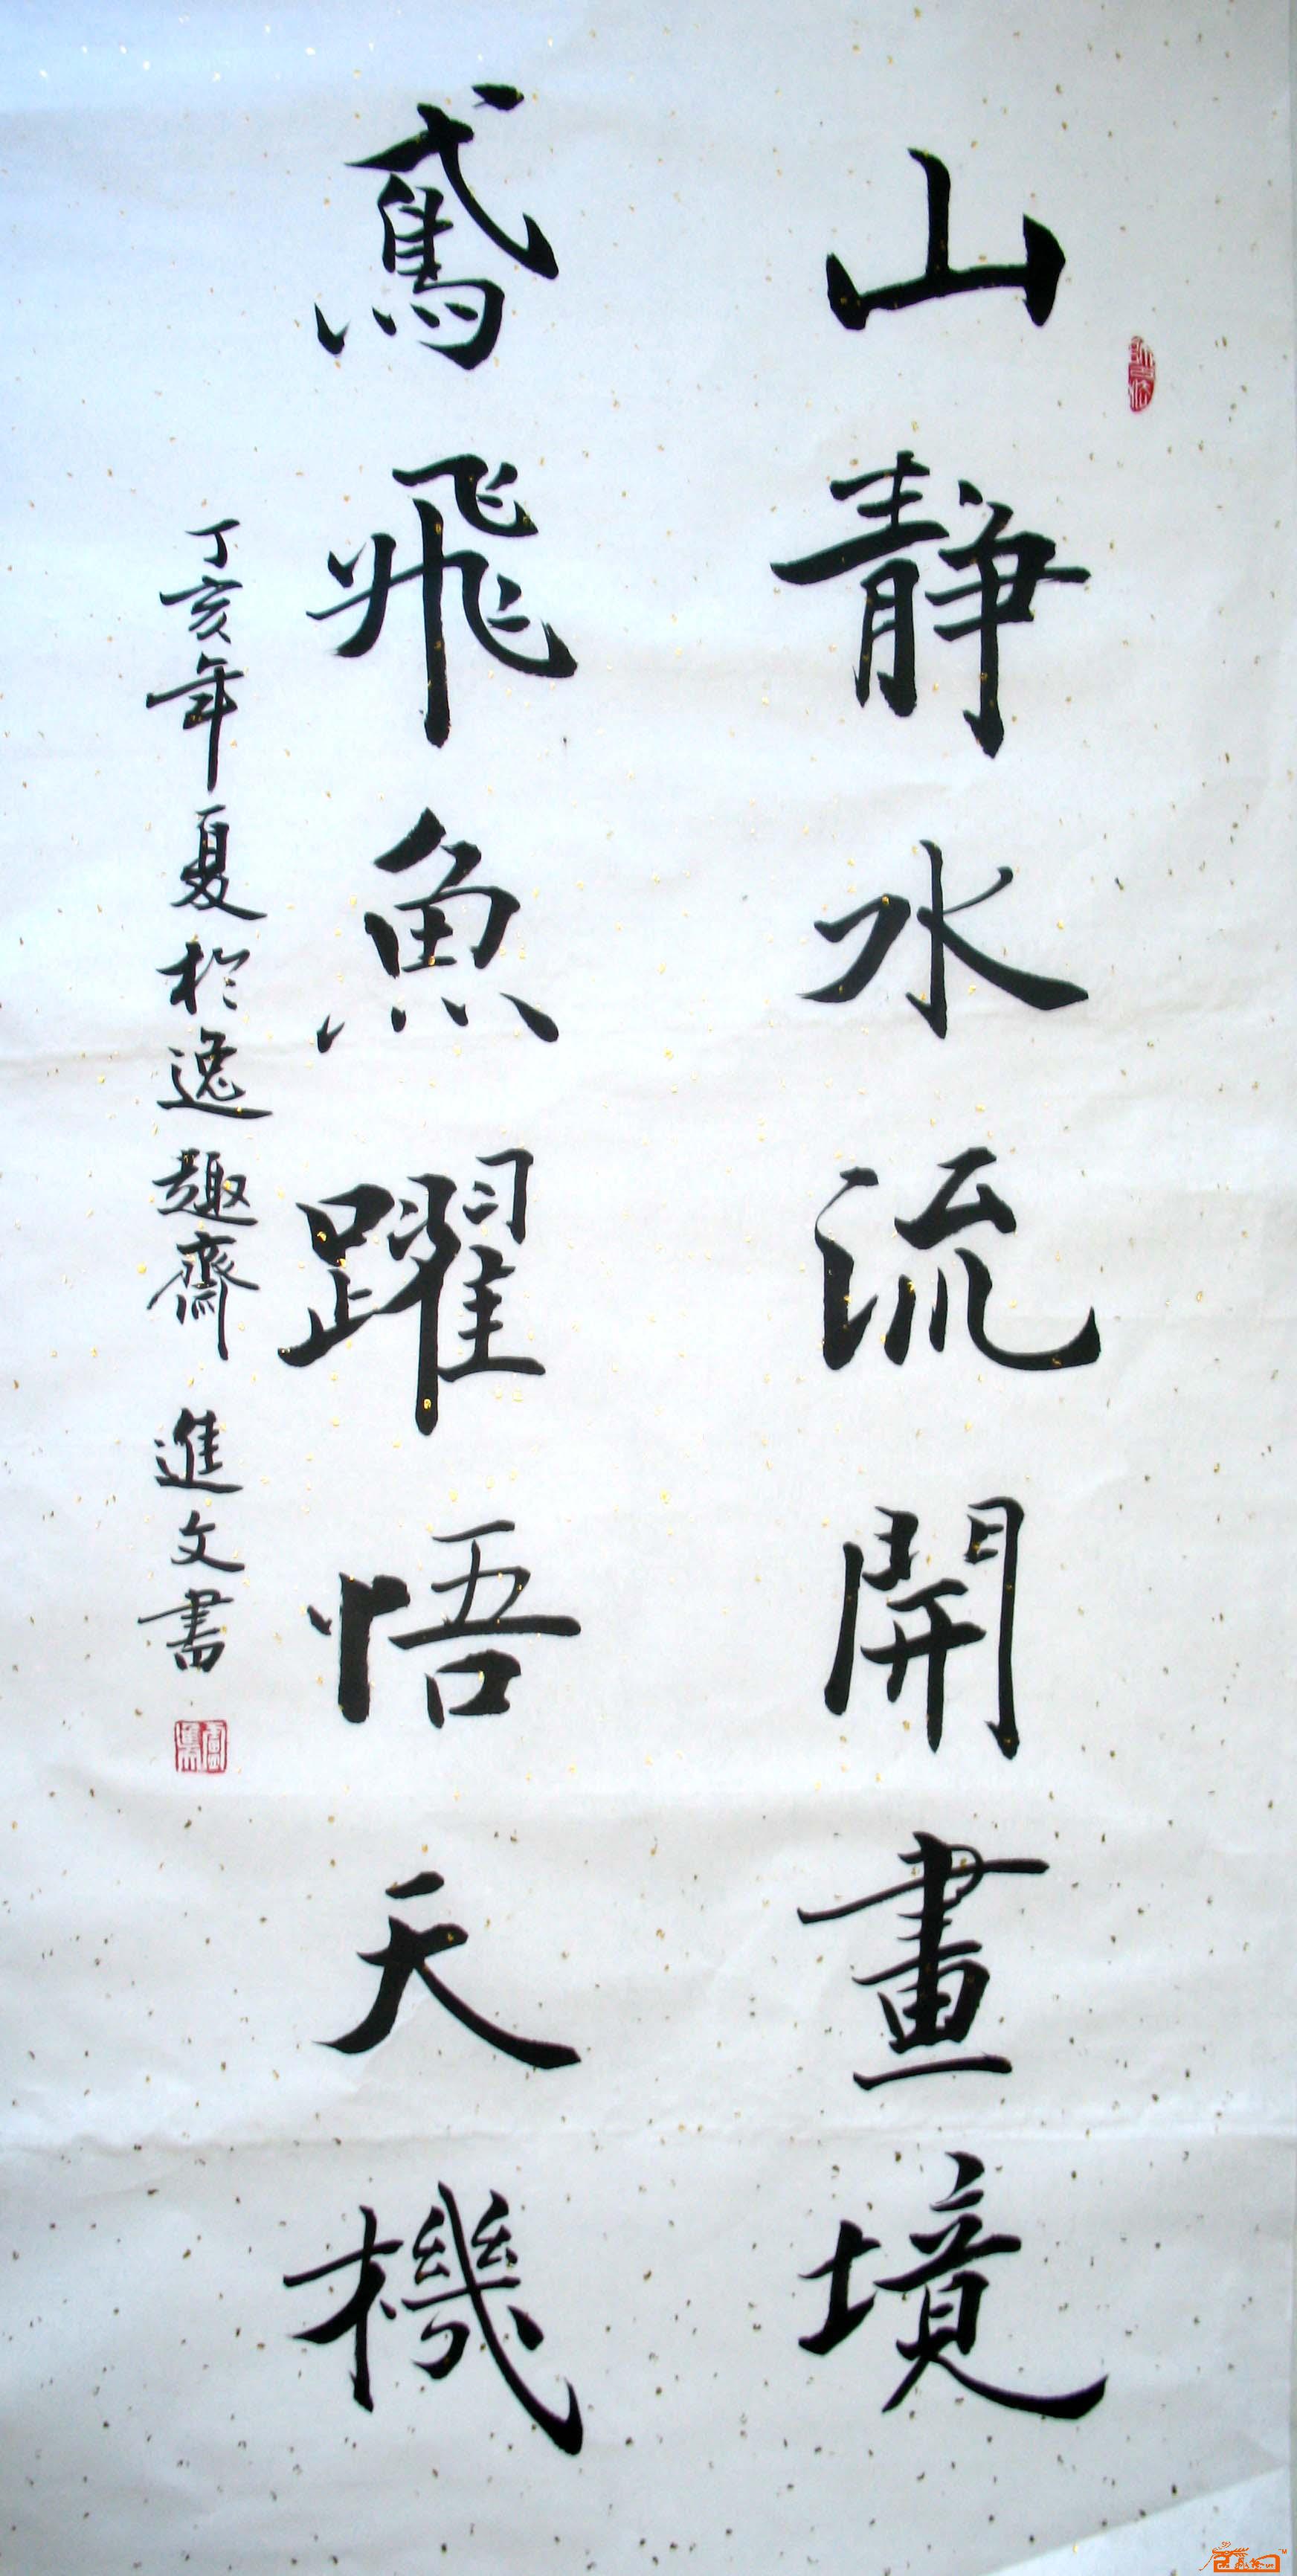 山靜水流開畫境
鳶飛魚躍悟天機
丁亥年夏於逸趣齋 進文書